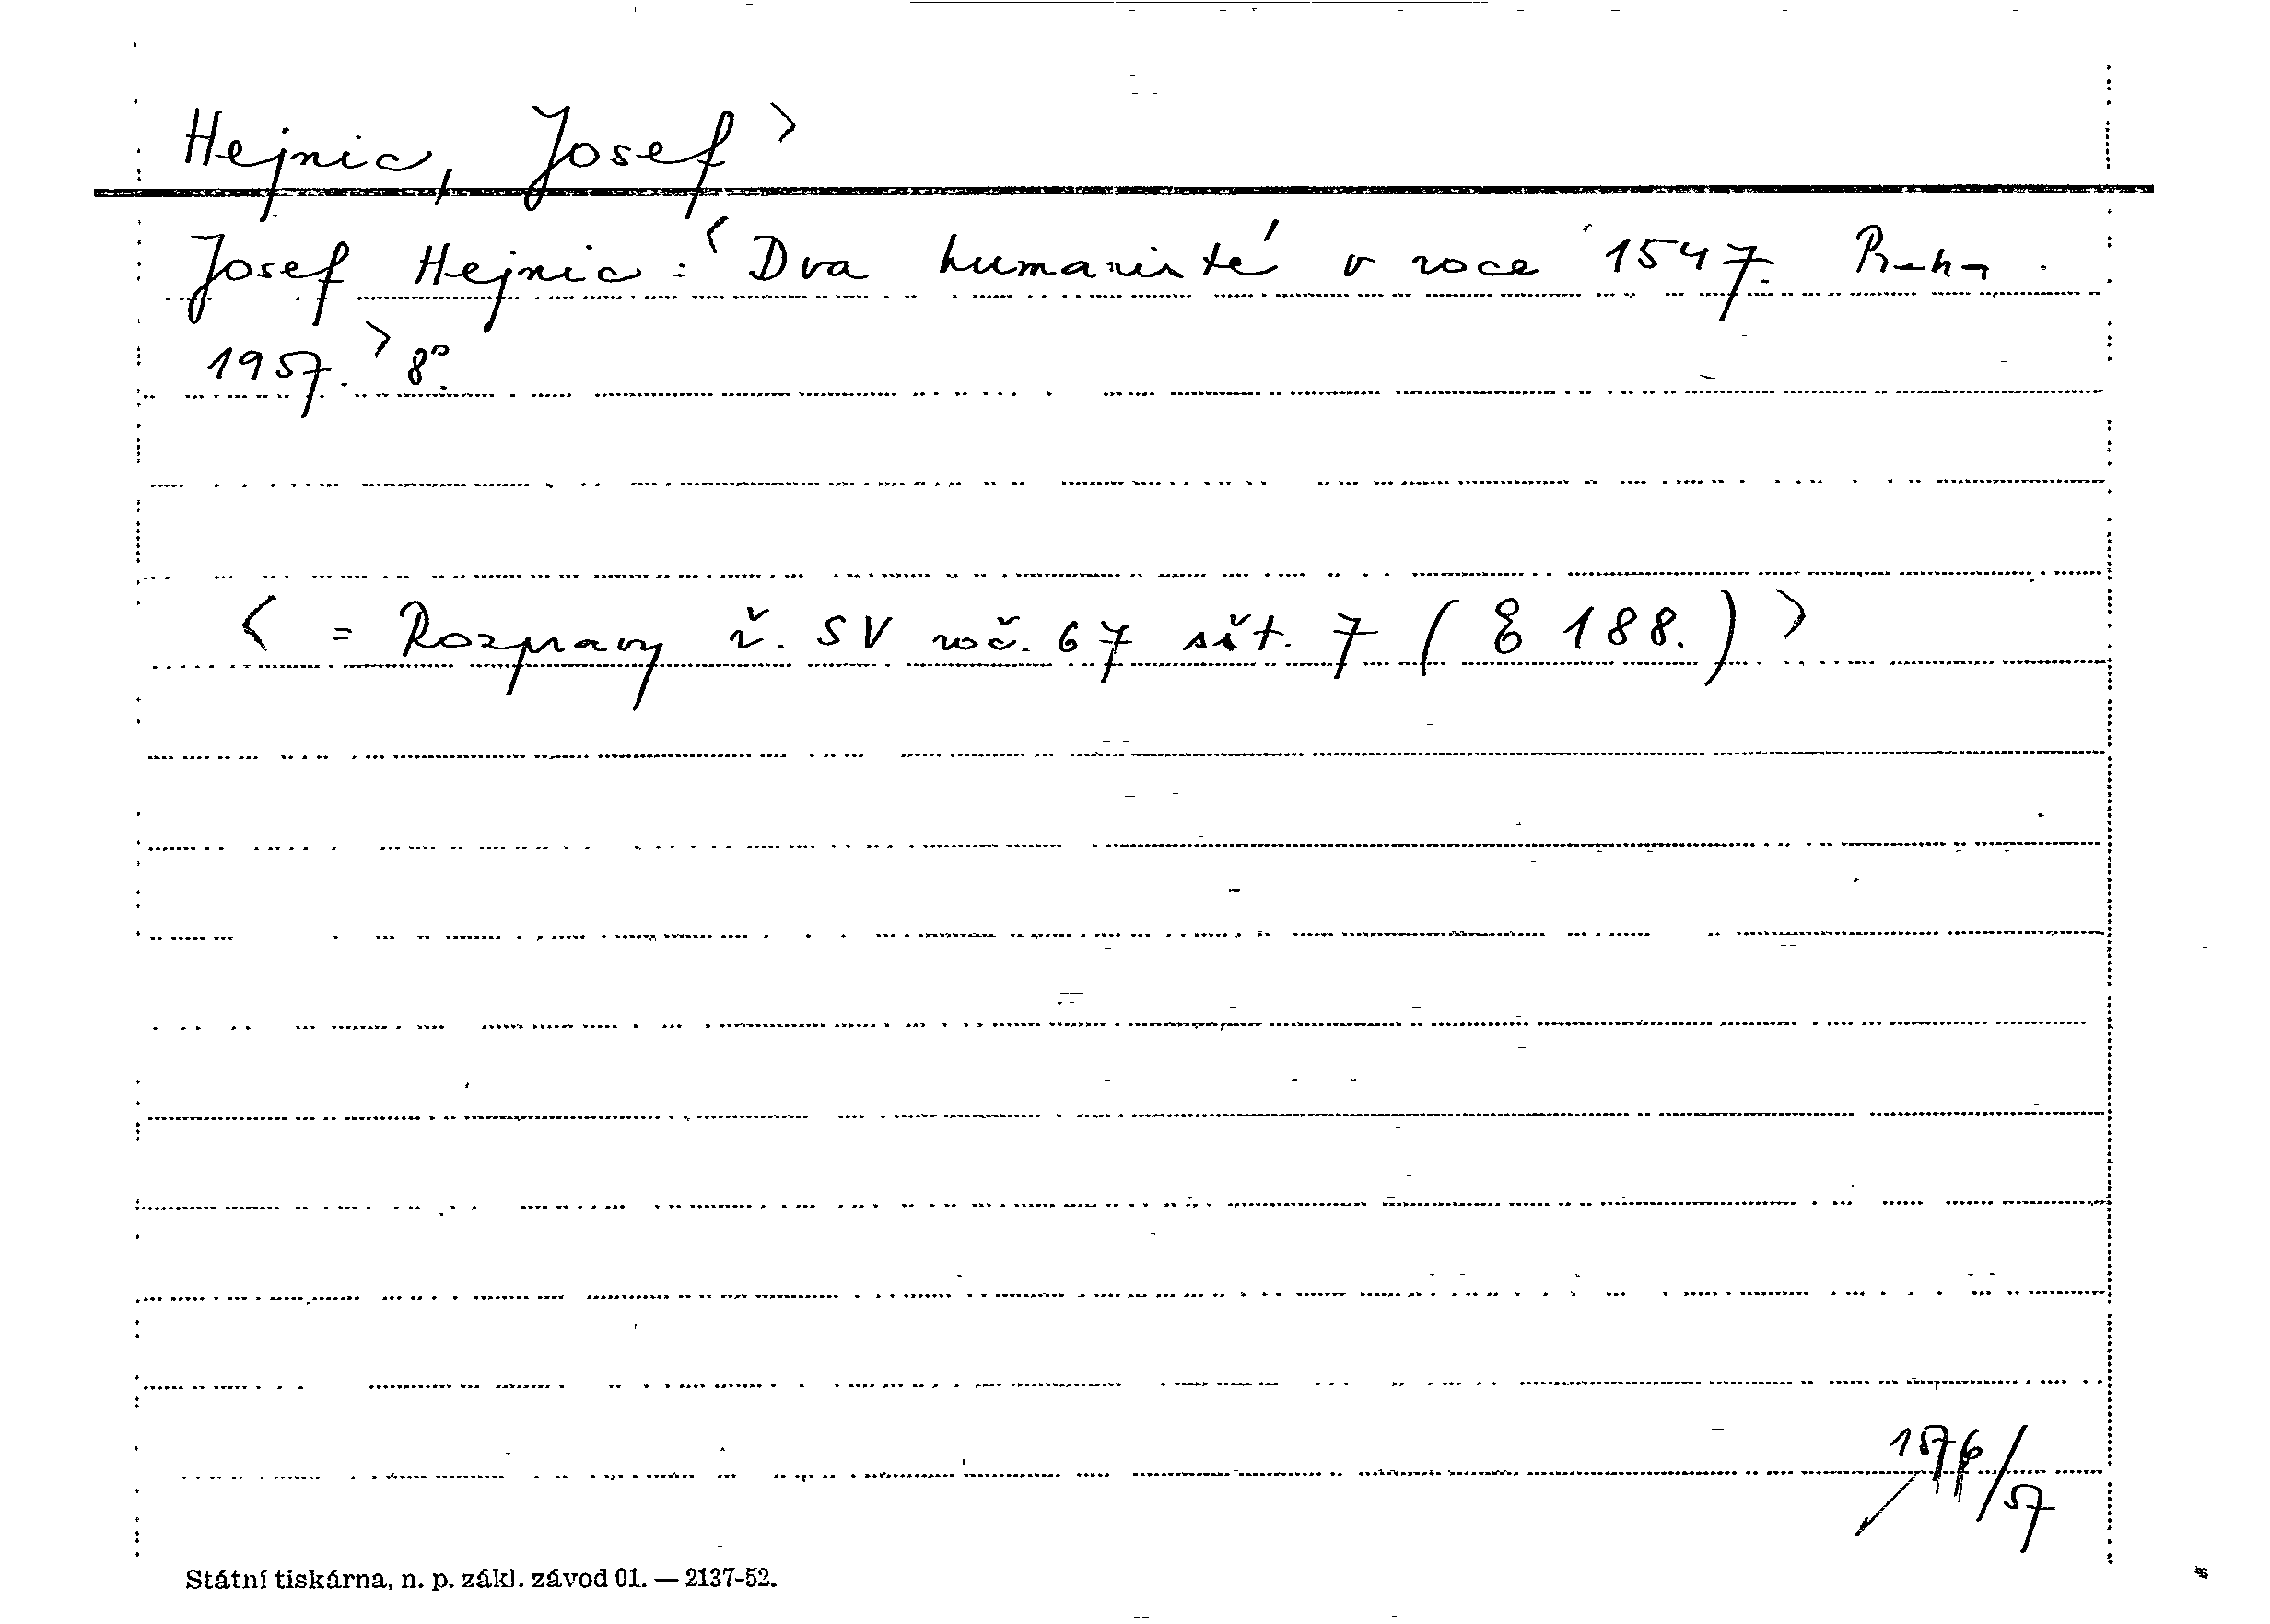 Hejnic, Josef >
Josef Hejnic: < Dva humanisté v roce 1547. Praha.
1957. > 8°.
< = Rozpravy ř. SV roč. 67 sšt. 7 (E 188.) >
/57
Státní tiskárna, n. p. zákl. závod 01. — 2137-52.